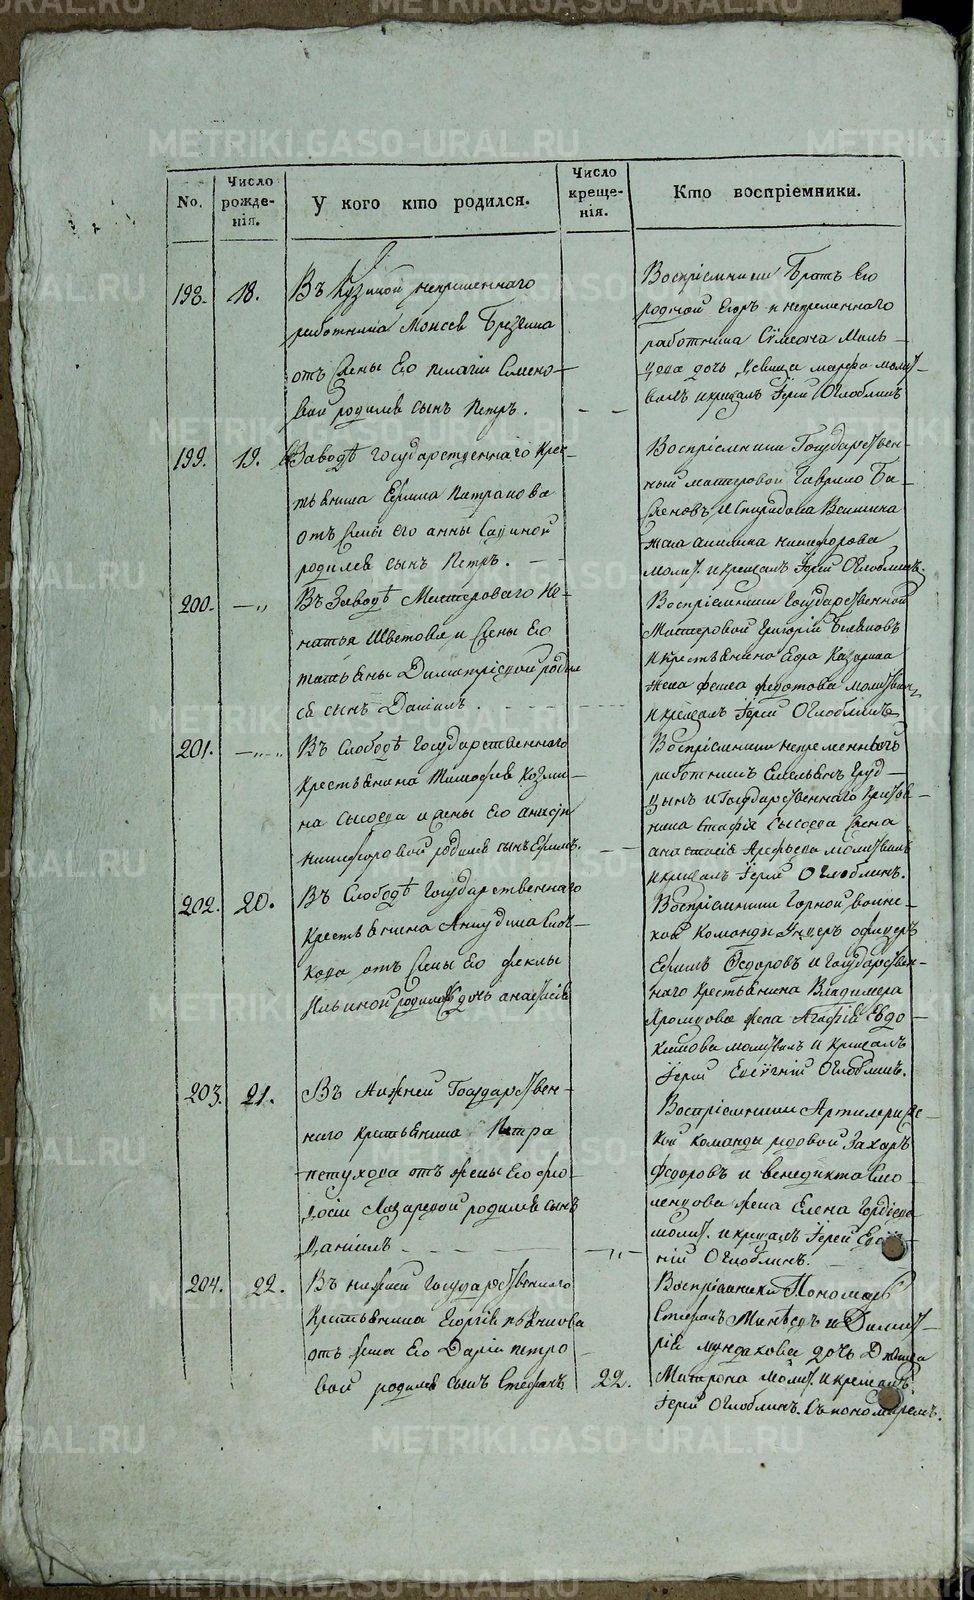 METRIKI.GASO-URAL.RU
No.
Число рожденія.
У кого кто родился.
Число крещенія.
Кто воспріемники.
198. 18. Въ Кузиной непременнаго
работника Моисея
отъ жены Его Пелагіи Семено-
вой родился сынъ Петръ.
Воспріемники Братъ Его
родной Егоръ и непременнаго
работника Сѵмеона
дочь девица Марфа молит-
вилъ и крещалъ Іерей Оглоблинъ
199. 19. Заводѣ Государственнаго Крес-
тьянина Ефима Патракова
отъ жены его Анны Саввиной
родился сынъ Петръ.
Воспріемники Государствен-
ный мастеровой Гаврило Ба-
женовъ и Спиридона
жена Никифорова
молит. и крещалъ Іерей Оглоблинъ.
200. —„ Въ Заводѣ Мастероваго Иг-
натья Шветова и жены Его
Татьяны Димитріевой родил-
ся сынъ Даніилъ.
Воспріемники Государственной
Мастеровой Григорій
и крестьянина Казарина
жена Фекла Федотова молитвилъ
и крещалъ Іерей Оглоблинъ
201. —„ Въ Слободѣ Государственнаго
Крестьянина Тимофея Козми-
на Сысоева и жены Его
Никифоровой родился сынъ Ефимъ.
Воспріемники непременной
работникъ Емельянъ Груд-
цынъ и Государственнаго Крестья-
нина Сысоева жена
Анастасія Арефьева молитвилъ
и крещалъ Іерей Оглоблинъ.
202. 20. Въ Слободѣ Государственнаго
Крестьянина
отъ жены Его Феклы
Ильиной родилась дочь Анастасія
Воспріемники Горной воинс-
кой Команды Унтеръ офицеръ
Ефимъ Федоровъ и Государствен-
наго Крестьянина Владимера
жена Агафія Евдо-
кимова молитвилъ и крещалъ
Іерей Евгеній Оглоблинъ.
203. 21. Въ Нижней Государствен-
наго Крестьянина Петра
Петухова отъ жены Его Фео-
досіи Лазаревой родился сынъ
Даніилъ
Воспріемники Артилерійс-
кой команды рядовой Захаръ
Федоровъ и Венедикта Смо-
ленцова жена Елена Гордѣева
молит. и крещалъ Іерей Евге-
ній Оглоблинъ.
204. 22. Въ нижней Государственнаго
Крестьянина Георгія Пьянкова
отъ жены Его Даріи Петро-
вой родился сынъ Стефанъ 22.
Воспріемники Пономарь
Стефанъ и Димит-
рія дочь Девица
Матрона молит. и крещалъ
Іерей Оглоблинъ. Съ пономаремъ.